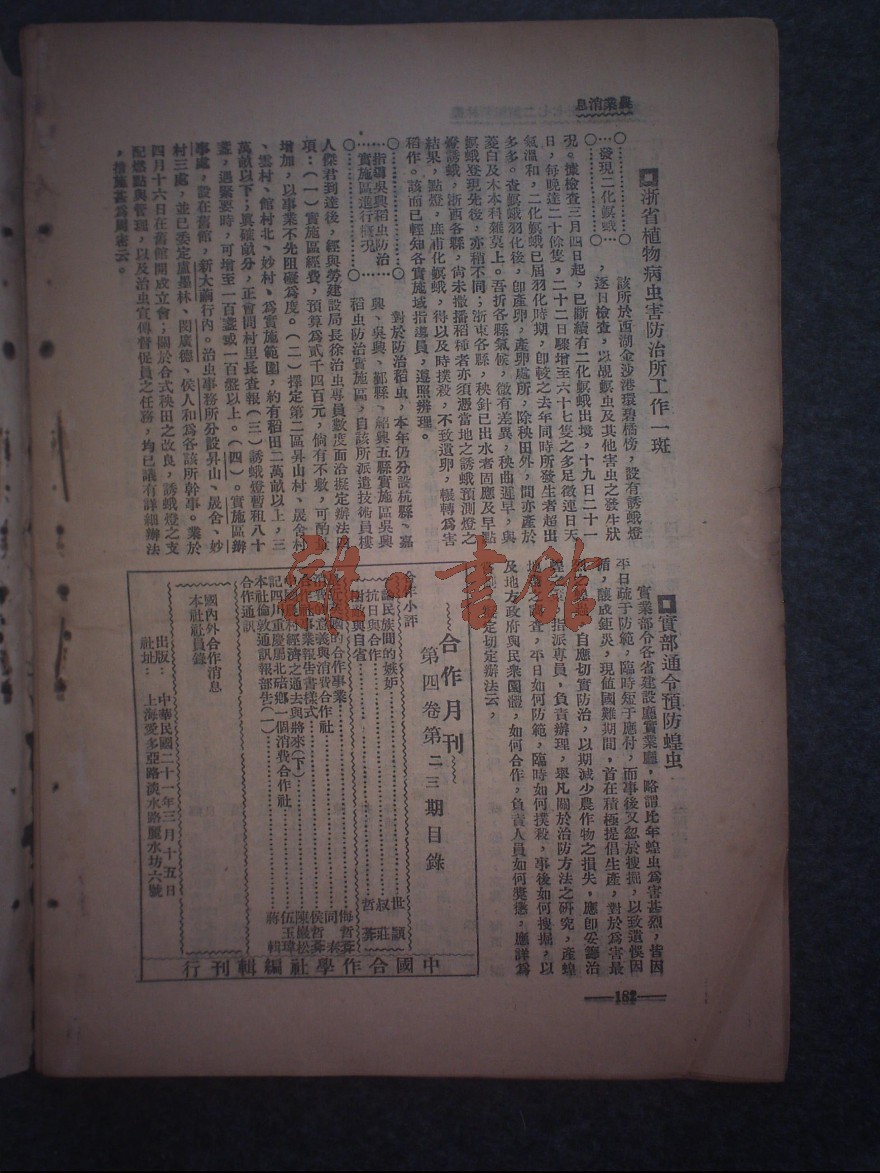 農業消息
浙省植物病虫害防治所工作一斑
發現二化螟蛾
該所於西湖金沙港環碧橋傍，設有誘蛾燈
，逐日檢查，以覘螟虫及其他害虫之發生狀
况。據檢查三月四日起，已斷續有二化螟蛾出境，十九日二十一
日，每晚達二十餘隻，二十二日驟增至六十七隻之多足徵連日天
氣溫和，二化螟蛾已屆羽化時期，卽較之去年同時所發生者超出
多多。查螟蛾羽化後，卽產卵，產卵處所，除秧田外，間亦產於
茭白及木本科雜莫上。吾折各縣氣候，微有差異，秧曲遲早，與
螟蛾登現先後，亦稍不同；浙東各縣，秧針已出水者固應及早點
燈誘蛾，浙西各縣，尙未撒播稻種者亦須憑當地之誘蛾預測燈之
結果，點燈，庶甫化螟蛾，得以及時撲殺，不致遺卵，輾轉為害
稻作。該而已輕知各實施域指導員，遵照辨理。
指導吳興稻虫防治
實施區進行概况
對於防治稻虫，本年仍分設杭縣、嘉
興、吳興、鄞縣、紹興五縣實施區吳興
稻虫防治實施區，自該所派遣技術員樓
人傑君到達後，經與勞建設局長徐治虫專員數度面洽擬定辦法四
項：（一）實施區經費，預算為貳千四百元，倘有不敷，可酌量
增加，以事業不先阻礙為度。（二）擇定第二區昇山村、晟舍村
、雲村、館村北、妙村、為實施範圍，約有稻田二萬畝以上，三
萬畝以下；與確畝分，正會同村里長查報（三）誘蛾燈暫租八十
盞，遇緊要時，可增至一百盞或一百盤以上。（四）。實施區辦
事處，設在舊館，新大繭行內。治虫事務所分設昇山、晟舍、妙
村三處，並已委定盧墨林、閔廣德、侯人和為各該所幹事。業於
四月十六日在舊館開成立會；關於合式秧田之改良，誘蛾燈之支
配燃點與管理，以及治虫宣傳督促員之任務，均已議有詳細辦法
，措施甚為周密云。
實部通令預防蝗虫
實業部令各省建設廳實業廳，略謂比年蝗虫為害甚烈，皆因
平日疏于防範，臨時短于應付，而事後又忽於搜掘，以致遺悞因
循，釀成鉅災，現值國難期間，首在積極提倡生產，對於為害最
自應切實防治，以期減少農作物之損失，應卽妥籌治
指派專員，負責辦理，舉凡關於治防方法之硏究，產蝗
查，平日如何防範，臨時如何撲殺，事後如何搜掘，以
及地方政府與民衆團體，如何合作，負責人員如何獎懲，應詳為
定切定辦法云，
合作月刊
第四卷第二三期目錄
合作小評
民族間的嫉妒……世顯
抗日與合作……叔莊
與自省……哲莽
的合作事業……侮哲莽
意義與消費合作社……同春
合作社事業報告書樣式……侯哲莽
中國農村經濟之過去與將來（下）……陳巖松
記四川重慶屬北碚鄉一個消費合作社……伍玉瑋
本社倫敦通訊報部告（一）……蔣輯
合作通訊
國內外合作消息
本社社員錄
出版：中華民國二十一年三月十五日
社址：上海愛多亞路淡水路麗水坊六號
中國合作學社編輯刊行
182
雜·書館